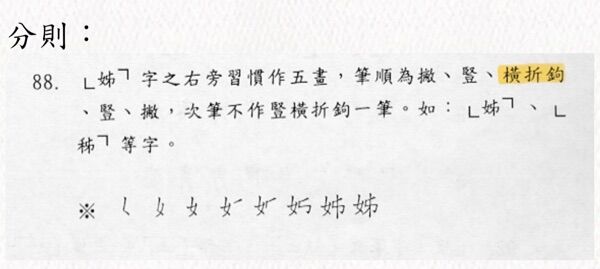 分則：
88. ㄴ姊ㄱ 字之右旁習慣作五畫，筆順為撇、豎、橫折鉤
、豎、撇，次筆不作豎橫折鉤一筆。如：ㄴ姊ㄱ、ㄴ
秭ㄱ 等字。
※ 𡿨 女 女